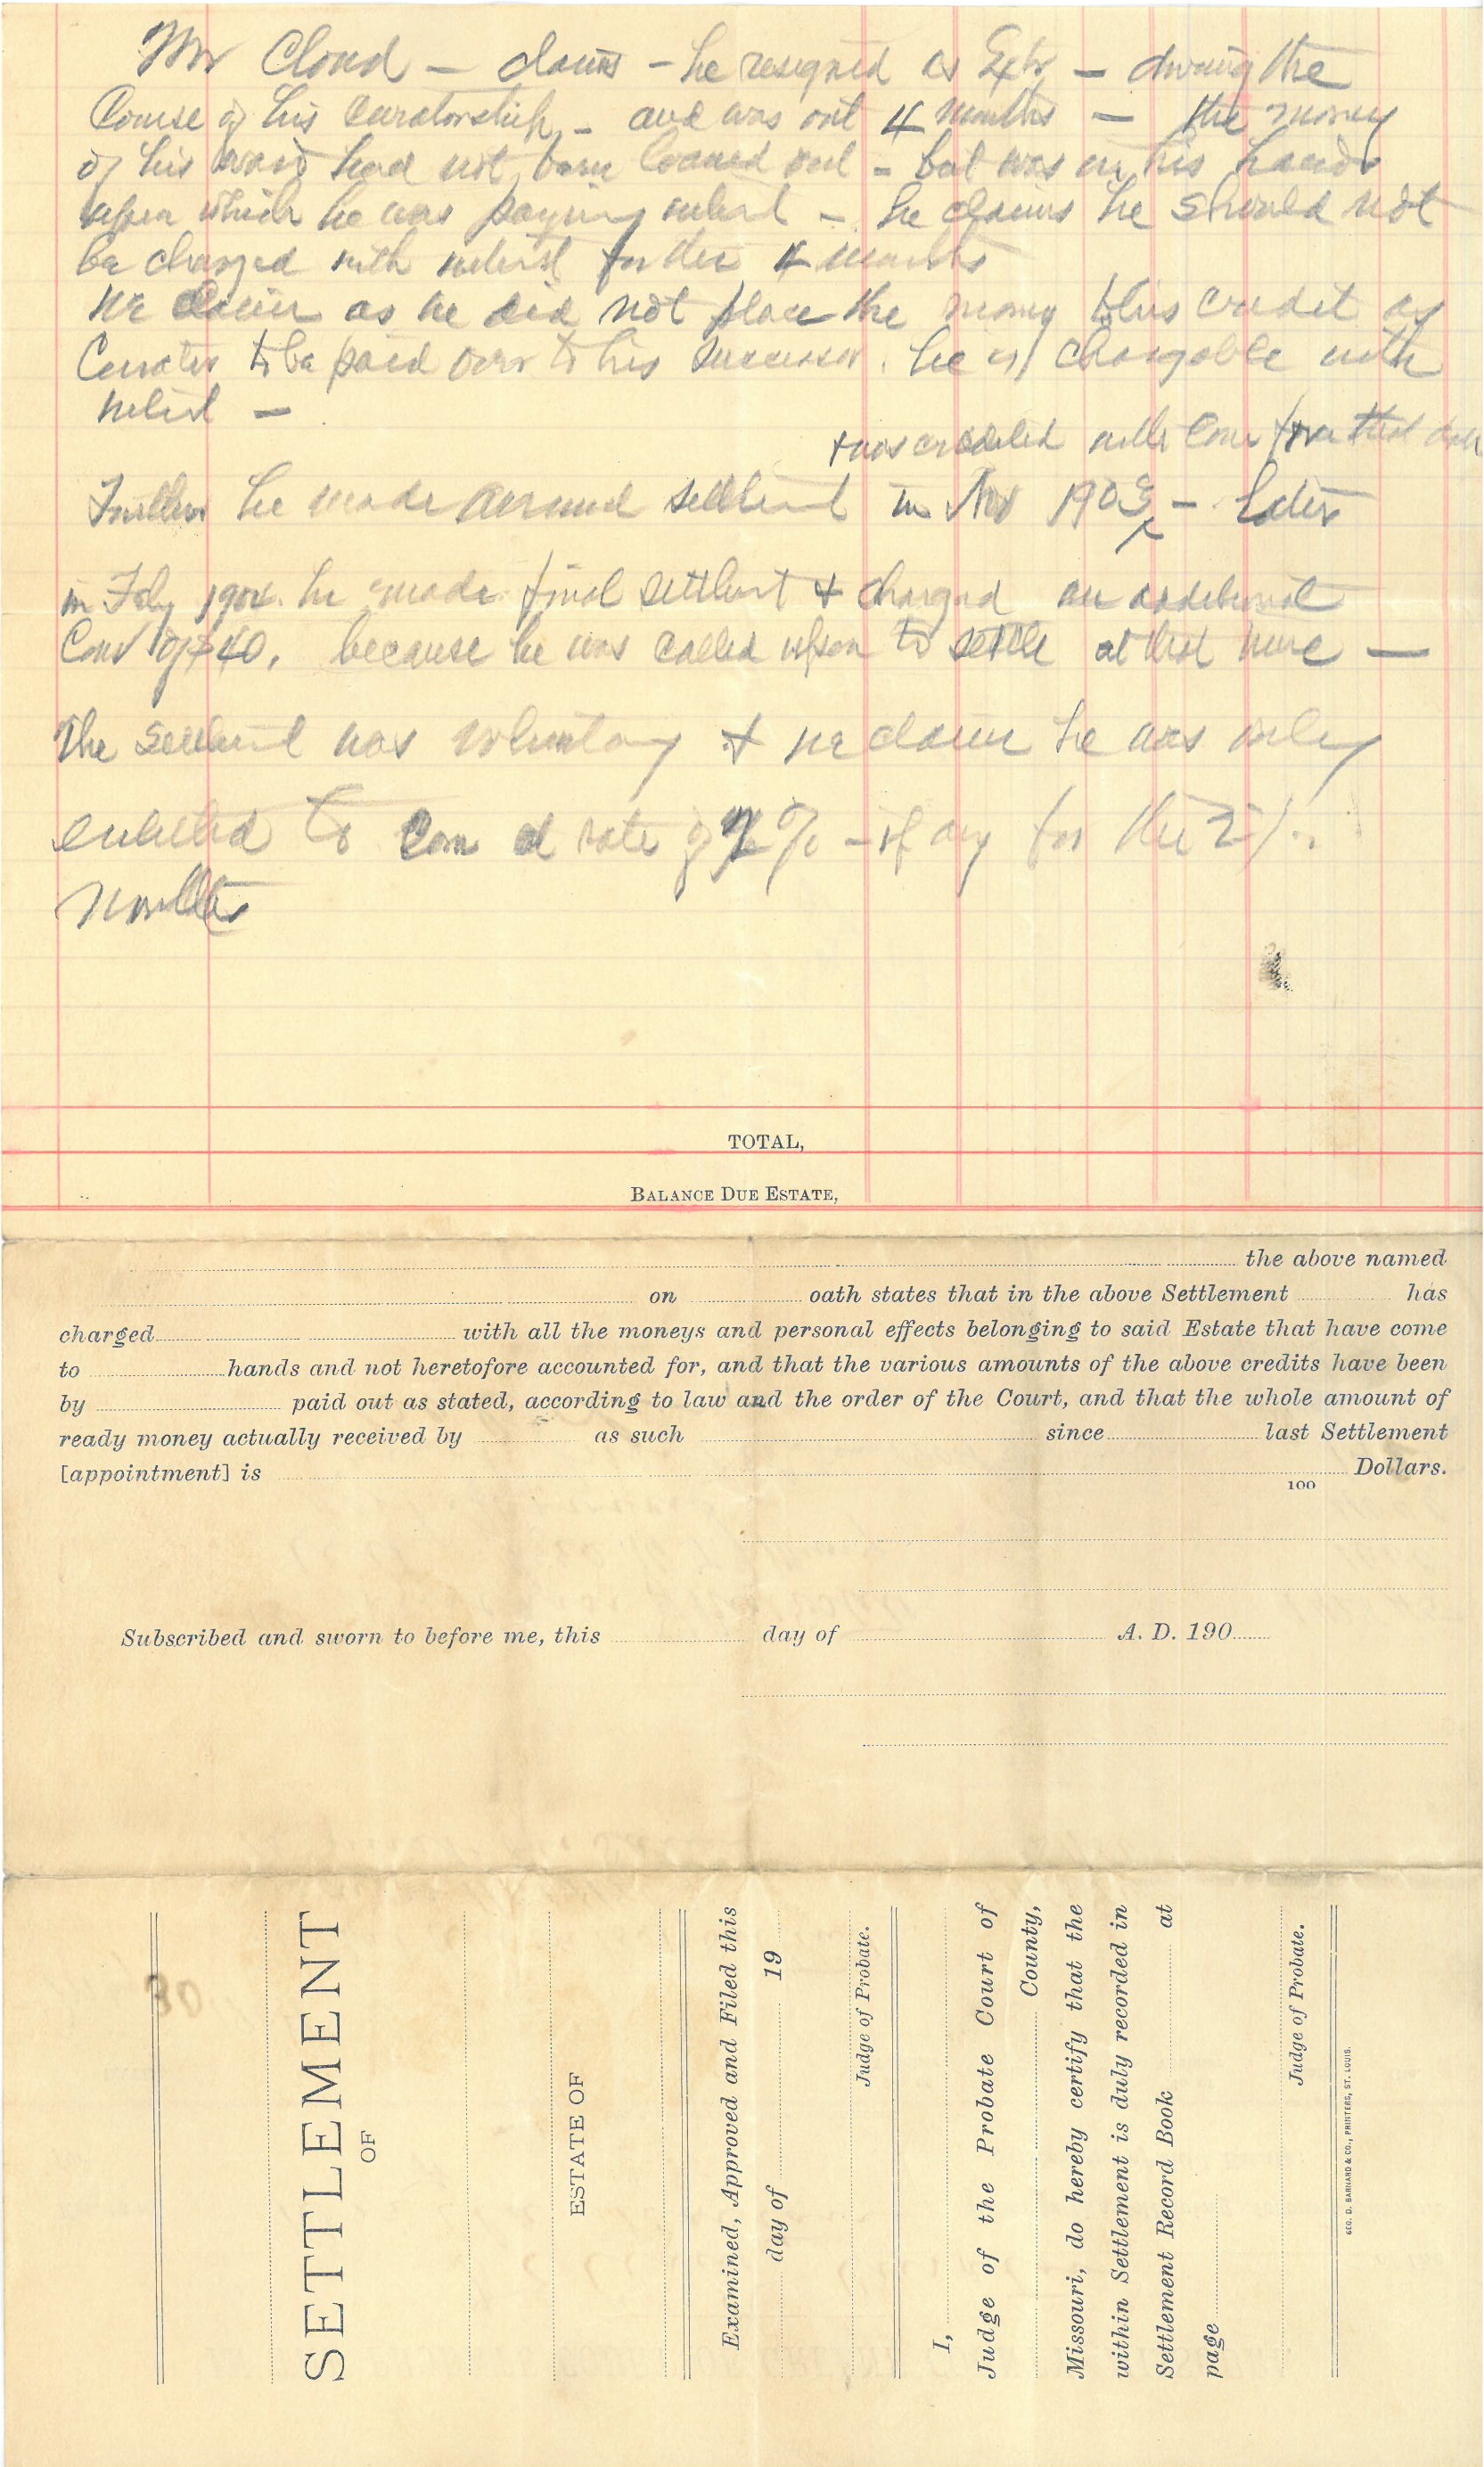 Mr Cloud — claims — he resigned as Extr — during the
Course of his curatorship, — and was out 4 months — the money
of his ward had not been loaned out — but was in his hands
upon which he was paying interest — he claims he should not
be charged with interest for the 4 months
We claim as he did not place the money to his credit as
Curator to be paid over to his successor. he is chargable with
interest —
+ was credited with Com that date
Further he made annual settlement in Nov 1903 — Later
in Feby 1904. he made final settlement & charged an additional
Com of $40, because he was called upon to settle at that time —
The settlement was voluntary & we claim he was only
entitled to Com at rate of % — if any for the 2
months
TOTAL,
BALANCE DUE ESTATE,
the above named
on oath states that in the above Settlement has
charged with all the moneys and personal effects belonging to said Estate that have come
to hands and not heretofore accounted for, and that the various amounts of the above credits have been
by paid out as stated, according to law and the order of the Court, and that the whole amount of
ready money actually received by as such since last Settlement
[appointment] is Dollars.
100
Subscribed and sworn to before me, this day of A. D. 190
SETTLEMENT
OF
ESTATE OF
Examined, Approved and Filed this
day of 19
Judge of Probate.
I,
Judge of the Probate Court of
County,
Missouri, do hereby certify that the
within Settlement is duly recorded in
Settlement Record Book at
page
Judge of Probate.
GEO. D. BARNARD & CO., PRINTERS, ST. LOUIS.